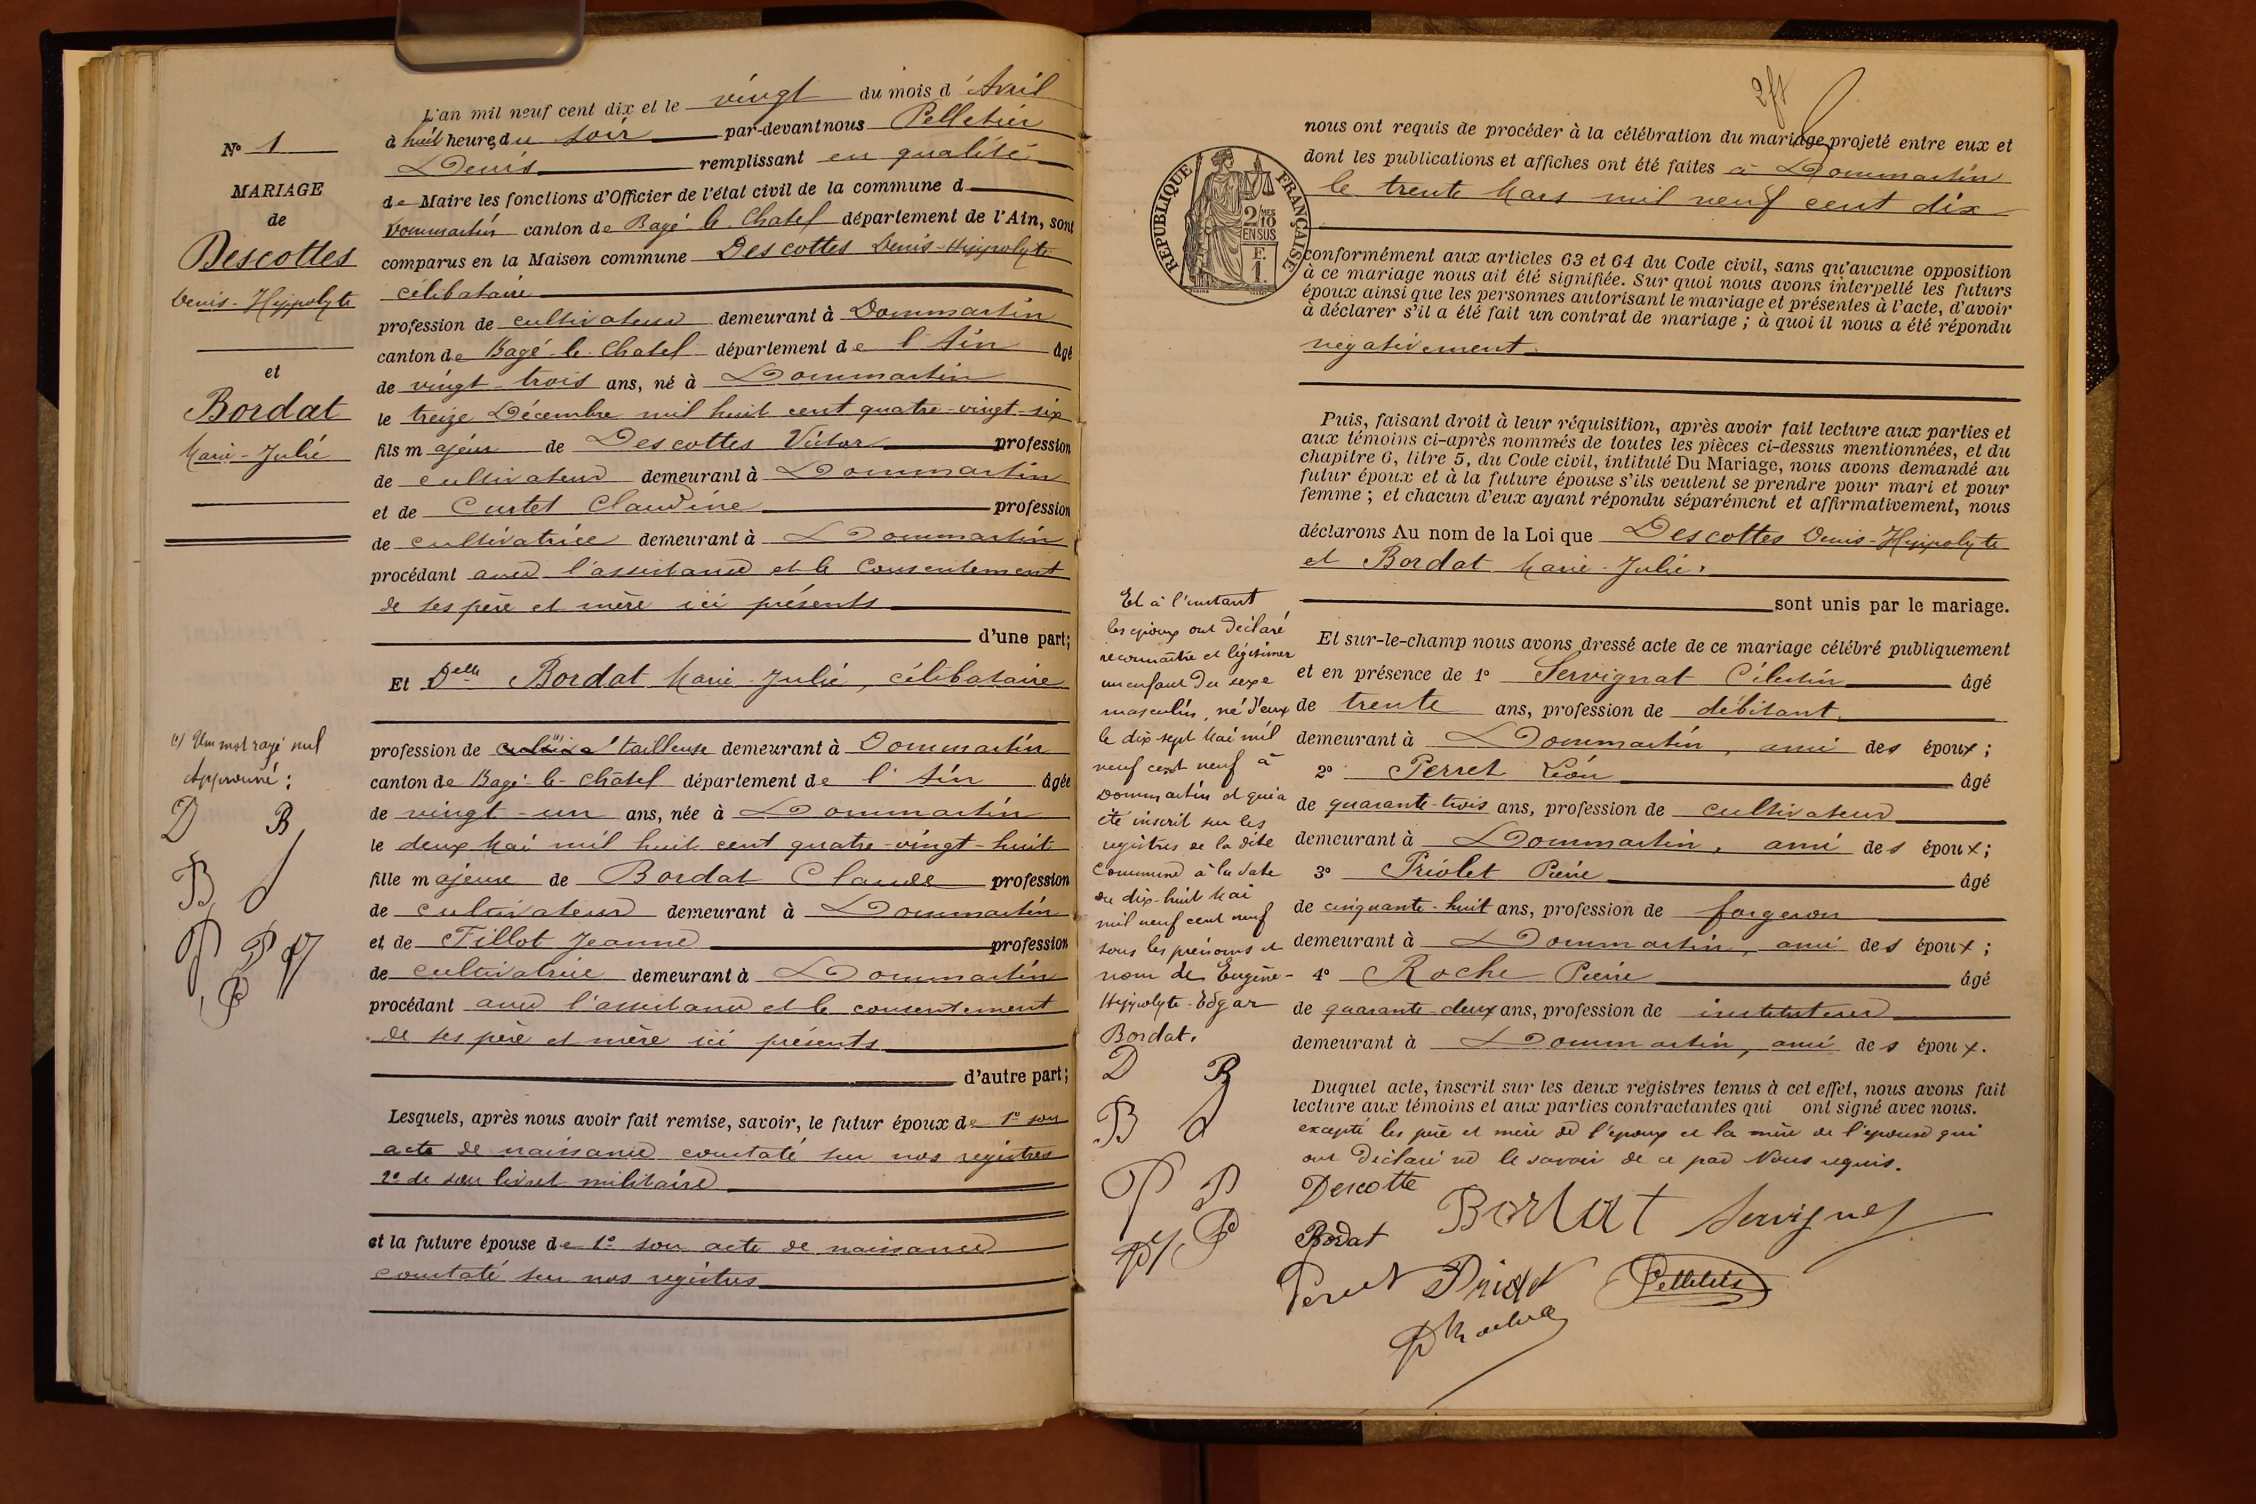 N° 1
MARIAGE
de
Descottes
Denis-Hyppolyte
et
Bordat
Marie-Julie
L'an mil neuf cent dix et le vingt du mois d'Avril
à huit heures du soir par-devant nous Pelletier
Denis remplissant en qualité
de Maire les fonctions d'Officier de l'état civil de la commune d
Dommartin canton de Bagé-le-Chatel département de l'Ain, sont
comparus en la Maison commune Descottes Denis-Hyppolyte
célibataire
profession de cultivateur demeurant à Dommartin
canton de Bagé-le-Chatel département de l'Ain âgé
de vingt-trois ans, né à Dommartin
le treize Décembre mil huit cent quatre-vingt-six
fils majeur de Descottes Victor profession
de cultivateur demeurant à Dommartin
et de Curtet Claudine profession
de cultivatrice demeurant à Dommartin
procédant avec l'assistance et le consentement
de ses père et mère ici présents
d'une part;
Et Delle Bordat Marie-Julie, célibataire
profession de tailleuse demeurant à Dommartin
canton de Bagé-le-Châtel département de l'Ain âgée
de vingt-un ans, née à Dommartin
le deux Mai mil huit cent quatre-vingt-huit
fille majeure de Bordat Claude profession
de cultivateur demeurant à Dommartin
et de Fillot Jeanne profession
de cultivatrice demeurant à Dommartin
procédant avec l'assistance et le consentement
de ses père et mère ici présents
d'autre part;
Lesquels, après nous avoir fait remise, savoir, le futur époux de 1° son
acte de naissance constaté sur nos registres
2° de son livret militaire
et la future épouse de 1° son acte de naissance
constaté sur nos registres
Un mot rayé nul
Approuvé:
D B
B
P P
P
nous ont requis de procéder à la célébration du mariage projeté entre eux et
dont les publications et affiches ont été faites à Dommartin
le trente Mars mil neuf cent dix
RÉPUBLIQUE FRANÇAISE
2/10 EN SUS
F. 1.
conformément aux articles 63 et 64 du Code civil, sans qu'aucune opposition
à ce mariage nous ait été signifiée. Sur quoi nous avons interpellé les futurs
époux ainsi que les personnes autorisant le mariage et présentes à l'acte, d'avoir
à déclarer s'il a été fait un contrat de mariage; à quoi il nous a été répondu
négativement.
Puis, faisant droit à leur réquisition, après avoir fait lecture aux parties et
aux témoins ci-après nommés de toutes les pièces ci-dessus mentionnées, et du
chapitre 6, titre 5, du Code civil, intitulé Du Mariage, nous avons demandé au
futur époux et à la future épouse s'ils veulent se prendre pour mari et pour
femme; et chacun d'eux ayant répondu séparément et affirmativement, nous
déclarons Au nom de la Loi que Descottes Denis-Hyppolyte
et Bordat Marie-Julie.
sont unis par le mariage.
Et sur-le-champ nous avons dressé acte de ce mariage célébré publiquement
et en présence de 1° Servignat Célestin âgé
de trente ans, profession de débitant
demeurant à Dommartin, ami des époux;
2° Perret Léon âgé
de quarante-trois ans, profession de cultivateur
demeurant à Dommartin, ami des époux;
3° Priolet Pierre âgé
de cinquante-huit ans, profession de forgeron
demeurant à Dommartin, ami des époux;
4° Roche Pierre âgé
de quarante-deux ans, profession de instituteur
demeurant à Dommartin, ami des époux.
Duquel acte, inscrit sur les deux registres tenus à cet effet, nous avons fait
lecture aux témoins et aux parties contractantes qui ont signé avec nous.
excepté les père et mère de l'époux et la mère de l'épouse qui
ont déclaré ne le savoir de ce par Nous requis.
Descotte Bordat Servignat
Bordat
Perret Priolet Pelletier
P Roche
Et à l'instant
les époux ont déclaré
reconnaître et légitimer
un enfant du sexe
masculin, né d'eux
le dix-sept Mai mil
neuf cent neuf à
Dommartin et qui a
été inscrit sur les
registres de la dite
commune à la date
du dix-huit Mai
mil neuf cent neuf
sous les prénoms et
nom de Eugène-
Hyppolyte-Edgar
Bordat.
D B
B
P P
P